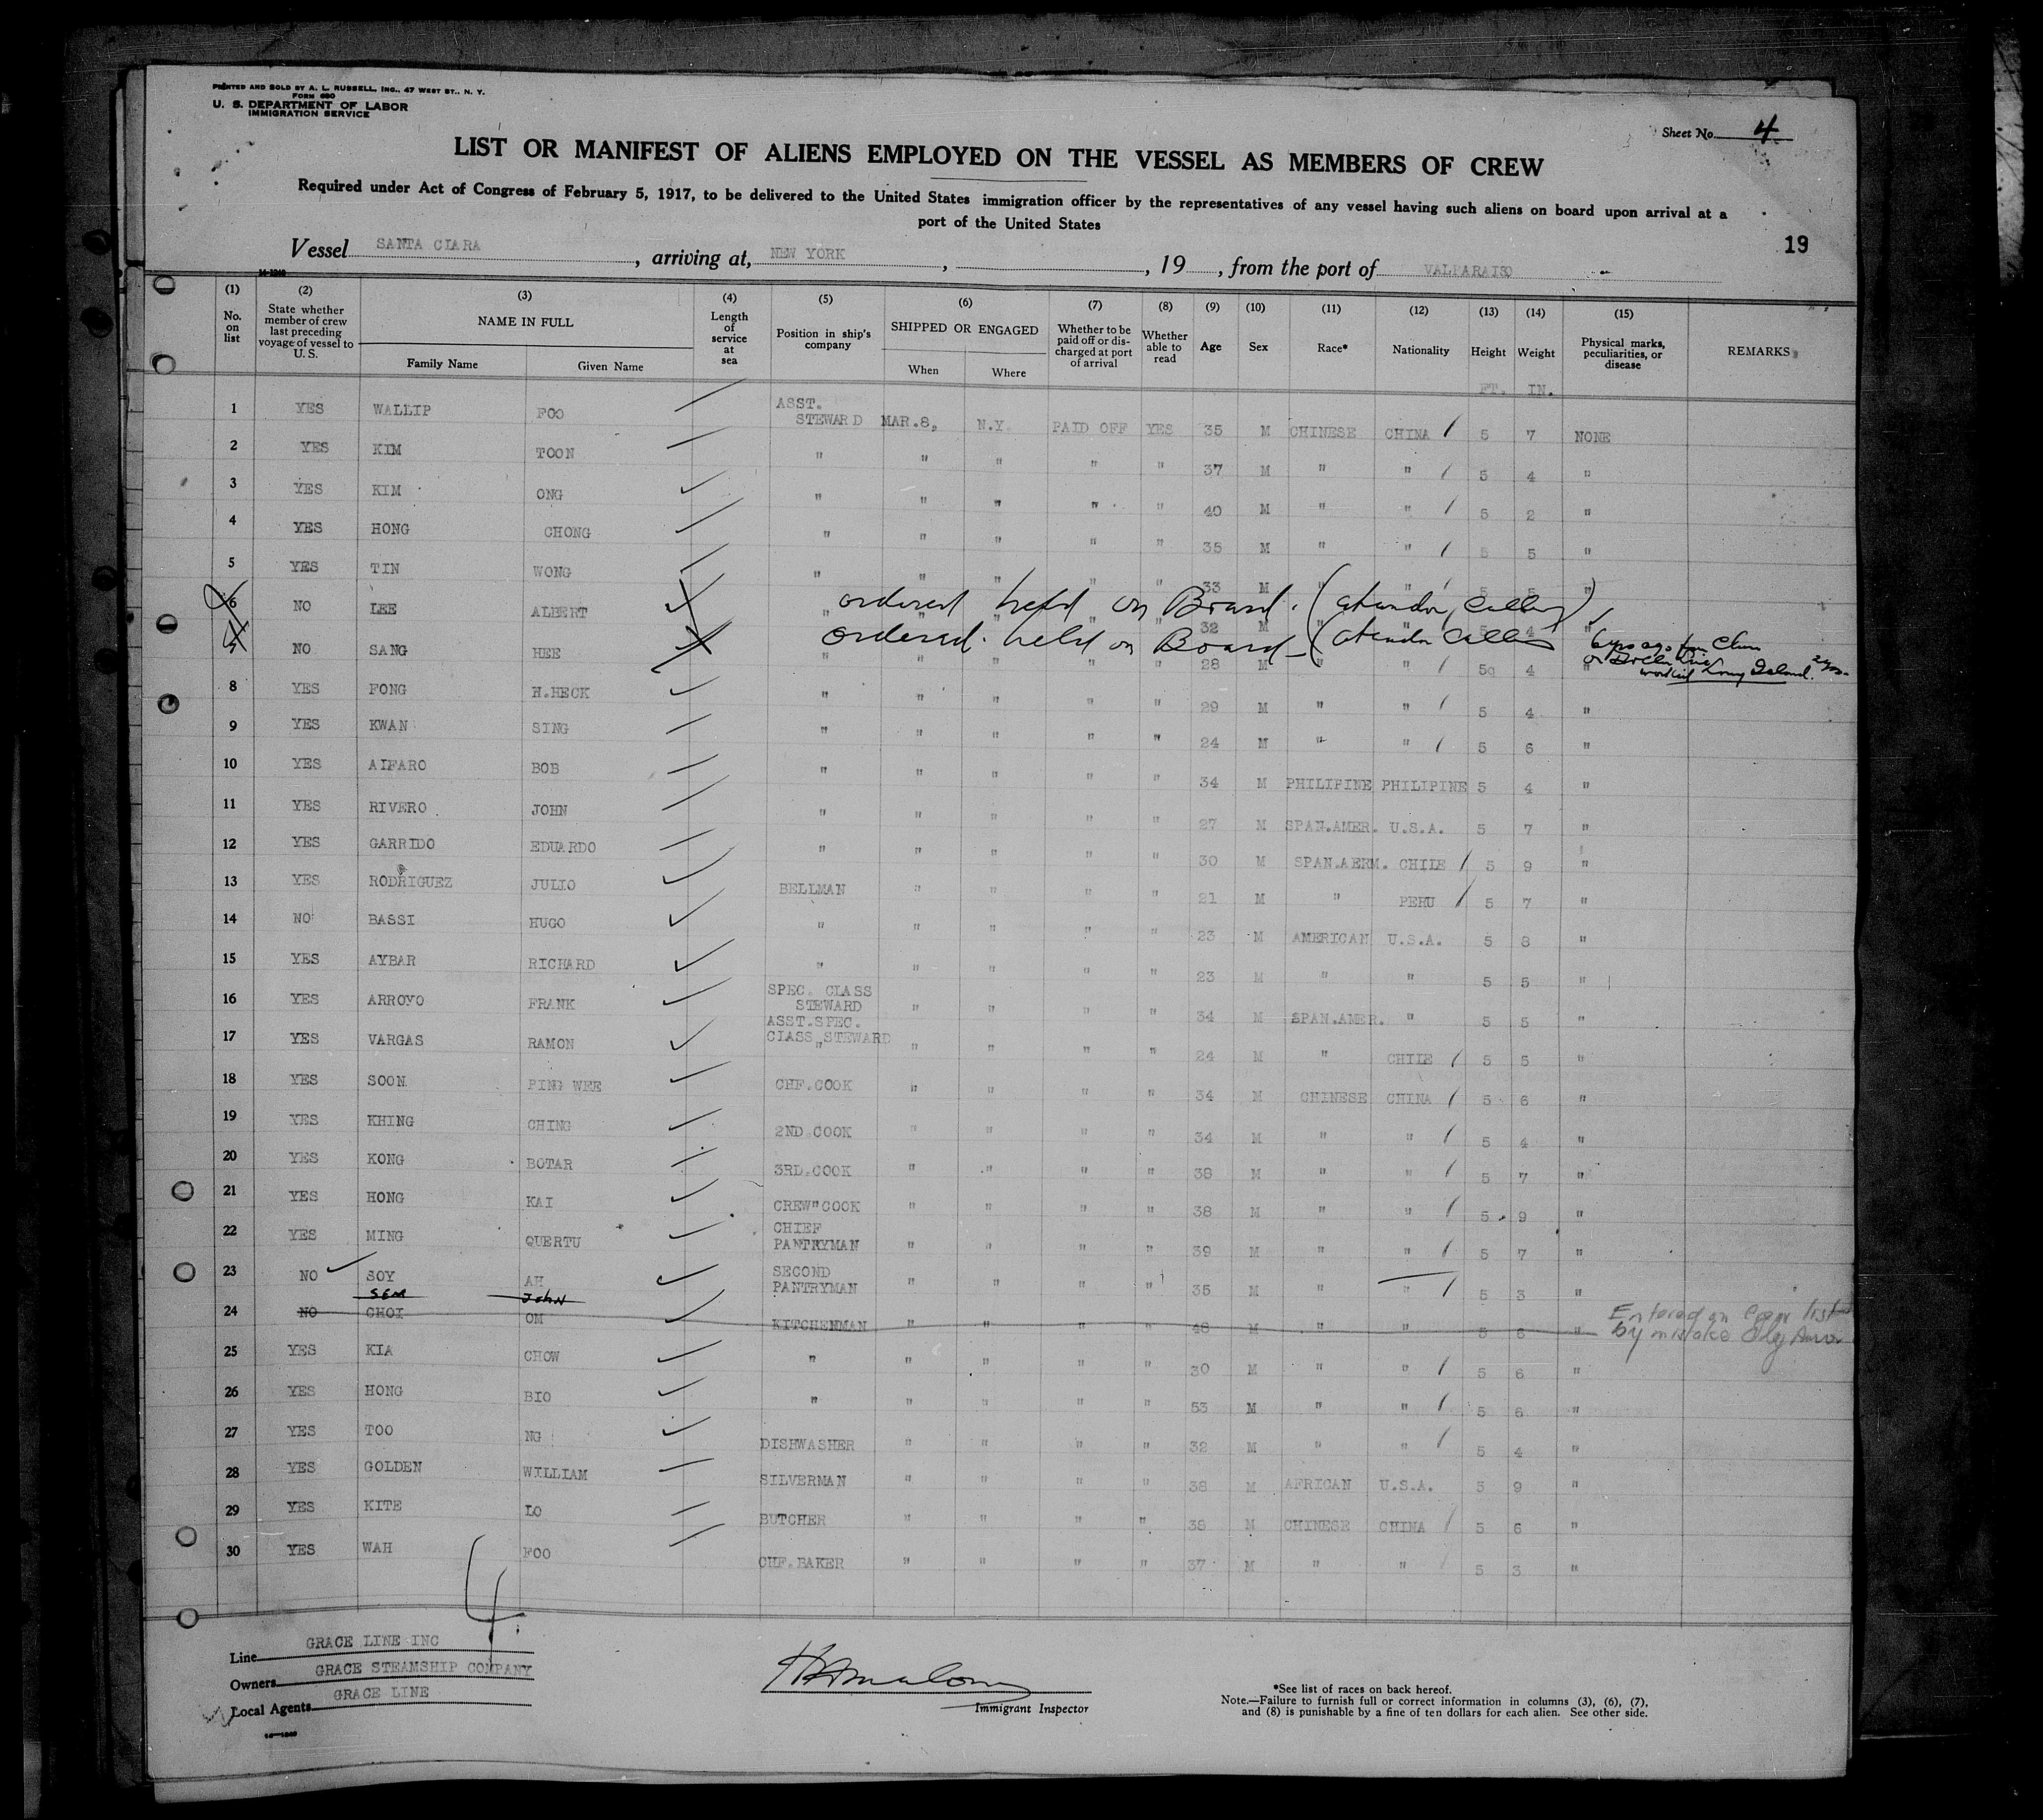 PRINTED AND SOLD BY A. L. RUSSELL, INC., 47 WEST ST., N. Y.
FORM 680
U. S. DEPARTMENT OF LABOR
IMMIGRATION SERVICE
Sheet No. 4
LIST OR MANIFEST OF ALIENS EMPLOYED ON THE VESSEL AS MEMBERS OF CREW
Required under Act of Congress of February 5, 1917, to be delivered to the United States immigration officer by the representatives of any vessel having such aliens on board upon arrival at a
port of the United States
19
Vessel SANTA CLARA, arriving at, NEW YORK, , 19 , from the port of VALPARAISO
14-1240
(1) No. on list (2) State whether member of crew last preceding voyage of vessel to U. S. (3) NAME IN FULL Family Name Given Name (4) Length of service at sea (5) Position in ship's company (6) SHIPPED OR ENGAGED When Where (7) Whether to be paid off or discharged at port of arrival (8) Whether able to read (9) Age (10) Sex (11) Race* (12) Nationality (13) Height (14) Weight (15) Physical marks, peculiarities, or disease REMARKS
FT. IN.
1 YES WALLIP FOO ASST. STEWARD MAR.8, N.Y. PAID OFF YES 35 M CHINESE CHINA 5 7 NONE
2 YES KIM TOON " " " " " 37 M " " 5 4 "
3 YES KIM ONG " " " " " 40 M " " 5 2 "
4 YES HONG CHONG " " " " " 35 M " " 5 5 "
5 YES TIN WONG " " " " " 33 M " " 5 5 "
6 NO LEE ALBERT " " " " " 32 M " " 5 4 "
ordered held on Board.
7 NO SANG HEE " " " " " 28 M " " 59 4 "
ordered held on Board
6 yrs ago from China
worked Long Island 2 yrs.
8 YES FONG H.HECK " " " " " 29 M " " 5 4 "
9 YES KWAN SING " " " " " 24 M " " 5 6 "
10 YES AIFARO BOB " " " " " 34 M PHILIPINE PHILIPINE 5 4 "
11 YES RIVERO JOHN " " " " " 27 M SPAN.AMER. U.S.A. 5 7 "
12 YES GARRIDO EDUARDO " " " " " 30 M SPAN.AERM. CHILE 5 9 "
13 YES RODRIGUEZ JULIO BELLMAN " " " " 21 M " PERU 5 7 "
14 NO BASSI HUGO " " " " " 23 M AMERICAN U.S.A. 5 8 "
15 YES AYBAR RICHARD " " " " " 23 M " " 5 5 "
16 YES ARROYO FRANK SPEC. CLASS STEWARD " " " " 34 M SPAN.AMER. " 5 5 "
17 YES VARGAS RAMON ASST.SPEC. CLASS STEWARD " " " " " 24 M " CHILE 5 5 "
18 YES SOON PING WEE CHF.COOK " " " " 34 M CHINESE CHINA 5 6 "
19 YES KHING CHING 2ND.COOK " " " " 34 M " " 5 4 "
20 YES KONG BOTAR 3RD.COOK " " " " 38 M " " 5 7 "
21 YES HONG KAI CREW"COOK " " " " 38 M " " 5 9 "
22 YES MING QUERTU CHIEF PANTRYMAN " " " " 39 M " " 5 7 "
23 NO SOY AH SECOND PANTRYMAN " " " " 35 M " " 5 3 "
SEM JOHN
24 NO CHOI OM KITCHENMAN " " " " 48 M " " 5 6 " Entered on Crew list
by mistake
25 YES KIA CHOW " " " " " 30 M " " 5 6 "
26 YES HONG BIO " " " " " 53 M " " 5 6 "
27 YES TOO NG DISHWASHER " " " " 32 M " " 5 4 "
28 YES GOLDEN WILLIAM SILVERMAN " " " 38 M AFRICAN U.S.A. 5 9 "
29 YES KITE LO BUTCHER " " " " 38 M CHINESE CHINA 5 6 "
30 YES WAH FOO CHF.BAKER " " " " 37 M " " 5 3 "
4
Line GRACE LINE INC
Owners GRACE STEAMSHIP COMPANY
Local Agents GRACE LINE
Immigrant Inspector
*See list of races on back hereof.
Note.—Failure to furnish full or correct information in columns (3), (6), (7),
and (8) is punishable by a fine of ten dollars for each alien. See other side.